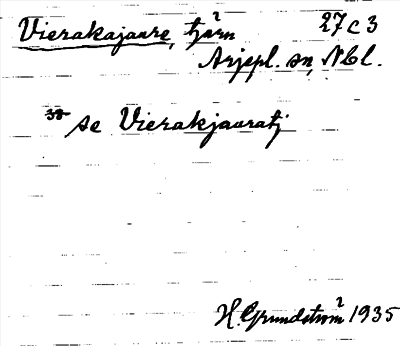 Vierakajaure, tjärn 27 C 3
Arjepl. sn, Nbl.
38 se Vierakjauratj
H. Grundström 1935